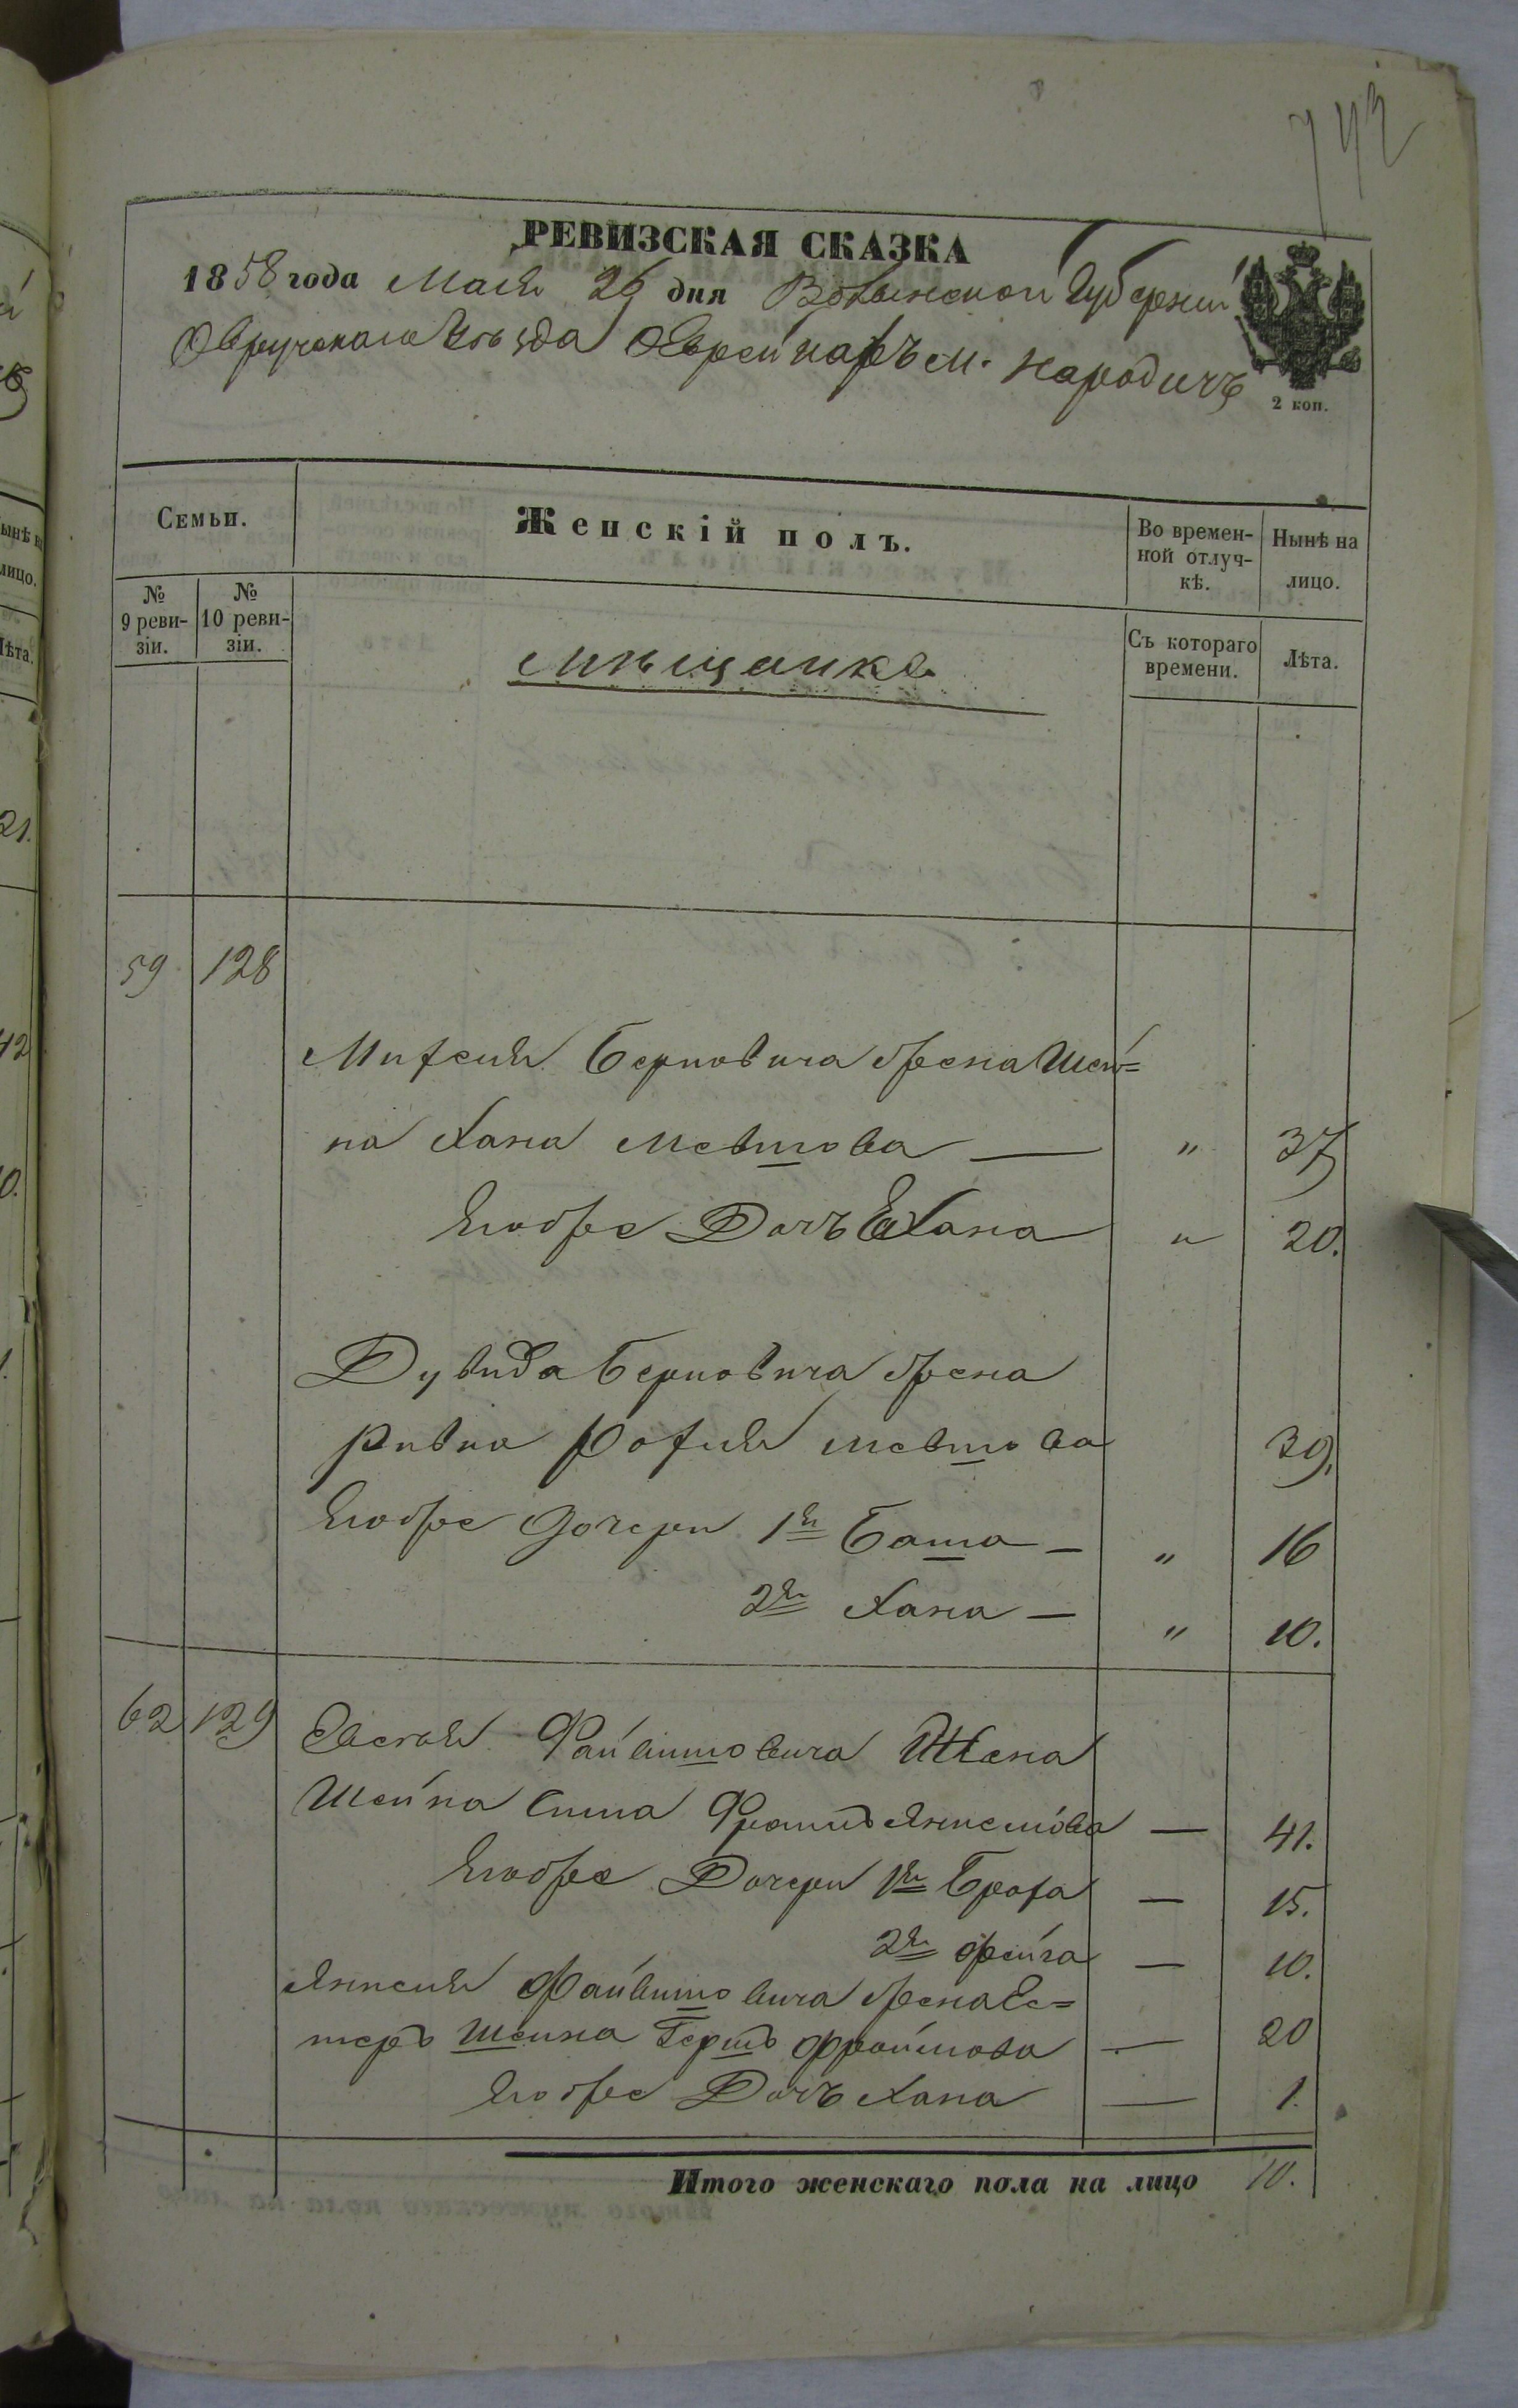 742
РЕВИЗСКАЯ СКАЗКА
1858 года Мая 26 дня Волынской Губерніи
Овручскаго Уѣзда Еврейнаръ м. Народичъ
2 коп.
Семьи.
Женскій полъ.
Во времен-
ной отлуч-
кѣ.
Нынѣ на
лицо.
№
9 реви-
зіи.
№
10 реви-
зіи.
Съ котораго
времени.
Лѣта.
Мѣщанки
59 128
Берковича жена Шей=
на Хана Мевшова — " 37
Егоже Дочь Хана " 20.
Дувида Берковича жена
Ривка Рохля Мевшова 39.
Егоже Дочери 1я Баша — " 16
2я Хана — " 10.
62 129
Файвишовича Жена
Шейна — 41.
Егоже Дочери 1я Броха — 15.
2я Фейга — 10.
Янкеля Файвишовича жена Ес=
теръ Шейна Гершъ Фроимова — 20
Егоже Дочь Хана — 1.
Итого женскаго пола на лицо 10.